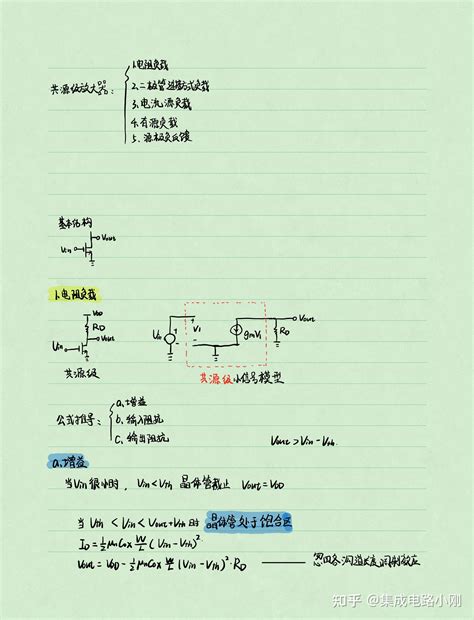 共源级放大器:
1.电阻负载
2.二极管连接方式负载
3.电流源负载
4.有源负载
5.源极负反馈
基本结构
Vin
Vout
1.电阻负载
VDD
RD
Vin
共源级
Vin
+
V1
-
gmV1
RD
Vout
共源级小信号模型
公式推导:
a.增益
b.输入阻抗
c.输出阻抗
Vout>Vin-Vth
a.增益
当Vin很小时, Vin<Vth 晶体管截止 Vout=VDD
当 Vth<Vin<Vout+Vth时 晶体管处于饱合区
ID=½μnCox W/L (Vin-Vth)²
Vout=VDD-½μnCox W/L (Vin-Vth)²·RD —— 忽略沟道长度调制效应
知乎 @集成电路小刚